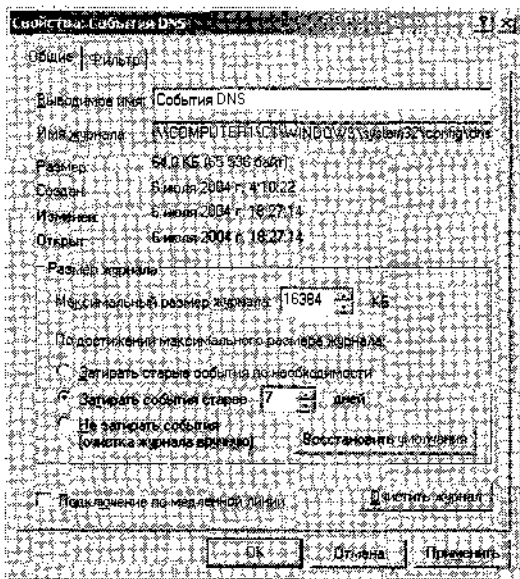 Свойства: События DNS
Общие Фильтр
Выводимое имя: События DNS
Имя журнала: \\COMPUTER1\C$\WINDOWS\system32\config\dns
Размер: 64,0 КБ (65 536 байт)
Создан: 5 июля 2004 г. 4:10:22
Изменен: 6 июля 2004 г. 18:27:14
Открыт: 6 июля 2004 г. 18:27:14
Размер журнала
Максимальный размер журнала: 16384 КБ
По достижении максимального размера журнала:
Затирать старые события по необходимости
Затирать события старее 7 дней
Не затирать события
(очистка журнала вручную) Восстановить умолчания
Подключение по медленной линии Очистить журнал
ОК Отмена Применить